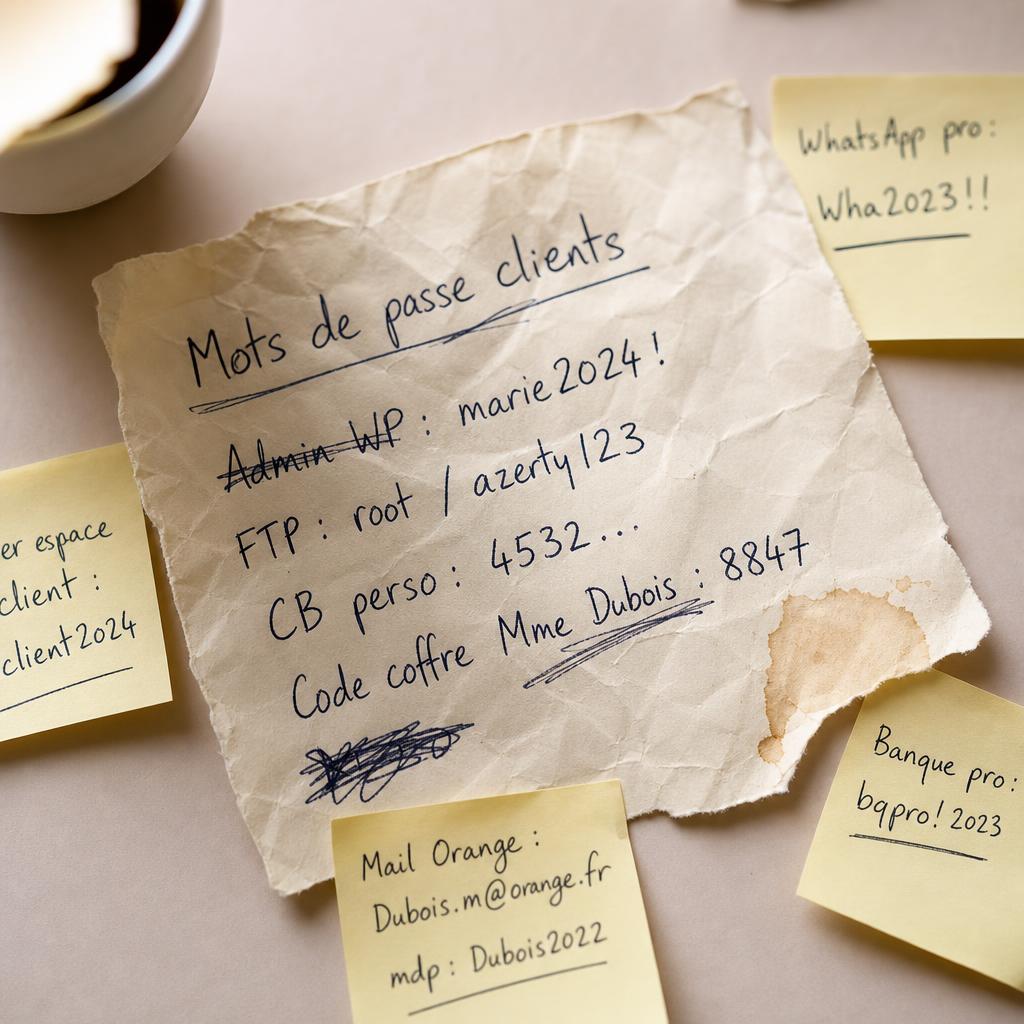 Mots de passe clients
Admin WP : marie2024!
FTP : root / azerty123
CB perso : 4532...
Code coffre Mme Dubois : 8847
WhatsApp pro :
Wha2023!!
er espace
client :
client2024
Mail Orange :
Dubois.m@orange.fr
mdp : Dubois2022
Banque pro :
bqpro! 2023